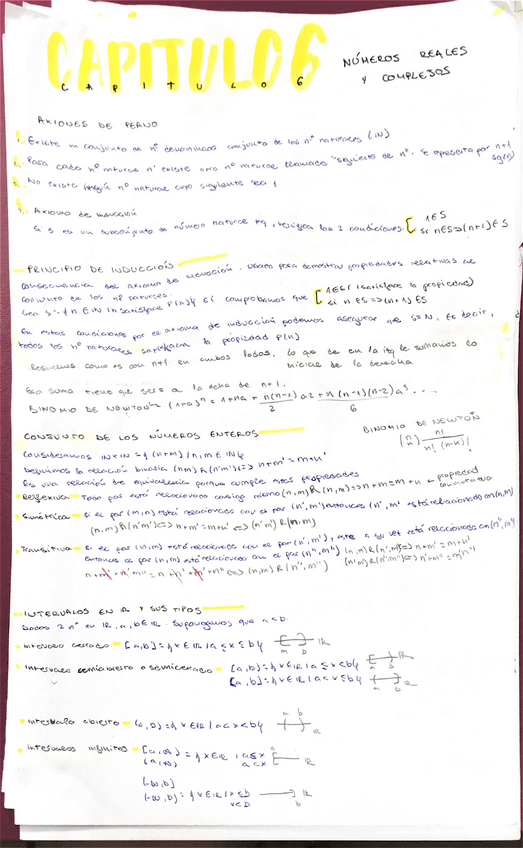 CAPITULO 6
CAPITULO 6
NÚMEROS REALES
Y COMPLEJOS
AXIOMAS DE PEANO
1. Existe un conjunto de nº denominado conjunto de los nº naturales (IN)
2. Para cada nº natural n existe otro nº natural llamado "siguiente de n". Se representa por n+1
sg(n)
3. No existe ningún nº natural cuyo siguiente sea 1
4. Axioma de inducción
Si S es un subconjunto de número natural tq, tengan las 2 condiciones [ 1ES
si nES⇒(n+1)ES
PRINCIPIO DE INDUCCIÓN
Consecuencia del axioma de inducción. Usado para demostrar propiedades relativas al
conjunto de los nº naturales.
Sea S = { n E IN | n satisface P(n)} si comprobamos que [ 1ES (satisface la propiedad)
si n ES ⇒(n+1) ES
En estas condiciones por el axioma de inducción podemos asegurar que S=IN, Es decir,
todos los nº naturales satisfacen la propiedad P(n)
como es con n+1 en ambos lados, lo que de en la izq le sumamos lo
de la derecha
Esa suma tiene que ser a la dcha de n+1.
BINOMIO DE NEWTON (1+a)ⁿ = 1+na + n(n-1)/2 a2 + n(n-1)(n-2)/6 a³ ...
BINOMIO DE NEWTON
(n m) n!/m!(n-m)!
CONJUNTO DE LOS NÚMEROS ENTEROS
Consideramos INxIN = { (n,m) / n,m E IN}
Definimos la relación binaria (n,m) R (n',m') ⇔ n+m' = m+n'
Es una relación de equivalencia porque cumple tres propiedades
Reflexiva - Todo par está relacionado consigo mismo (n,m) R (n,m) ⇔ n+m = m+n propiedad
conmutativa
Simétrica - Si el par (m,n) está relacionado con el par (n',m') entonces (n',m') está relacionado con (n,m)
(n,m) R (n',m') ⇔ n+m' = m+n' ⇔ (n',m') R (n,m)
Transitiva - Si el par (n,m) está relacionado con el par (n',m'), este a su vez está relacionado con (n'',m'')
entonces el par (n,m) está relacionado con el par (n'',m'') (n,m) R (n',m') ⇔ n+m' = m+n'
(n',m') R (n'',m'') ⇔ n'+m'' = m'+n''
n+m'+n'+m'' = m+n'+m'+n'' ⇔ (n,m) R (n'',m'')
INTERVALOS EN IR Y SUS TIPOS
Dados 2 nº en IR, a, b E IR. Supongamos que a<b.
Intervalo cerrado - [a,b] = { x E IR / a ≤ x ≤ b} a b IR
Intervalo semiabierto o semicerrado - [a,b) = { x E IR / a ≤ x < b} a b IR
(a,b] = { x E IR / a < x ≤ b} a b IR
Intervalo abierto - (a,b) = { x E IR / a < x < b} a b
Intervalos infinitos - [a,∞) = { x E IR / a ≤ x a IR
(a,∞) a < x
(-∞,b]
(-∞,b) = { x E IR / x ≤ b b IR
x < b